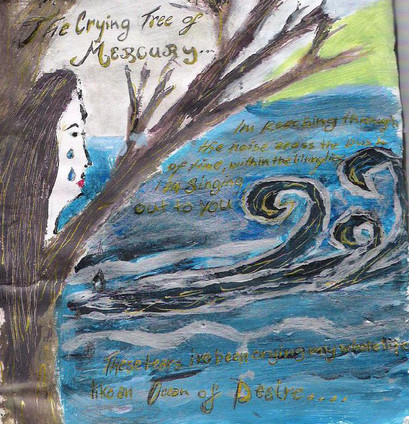 The Crying Tree of
Mercury...
Im reaching through
the noise across the
of time, within the
I am Singing
out to you
These tears ive been crying my
like an Ocean of Desire....